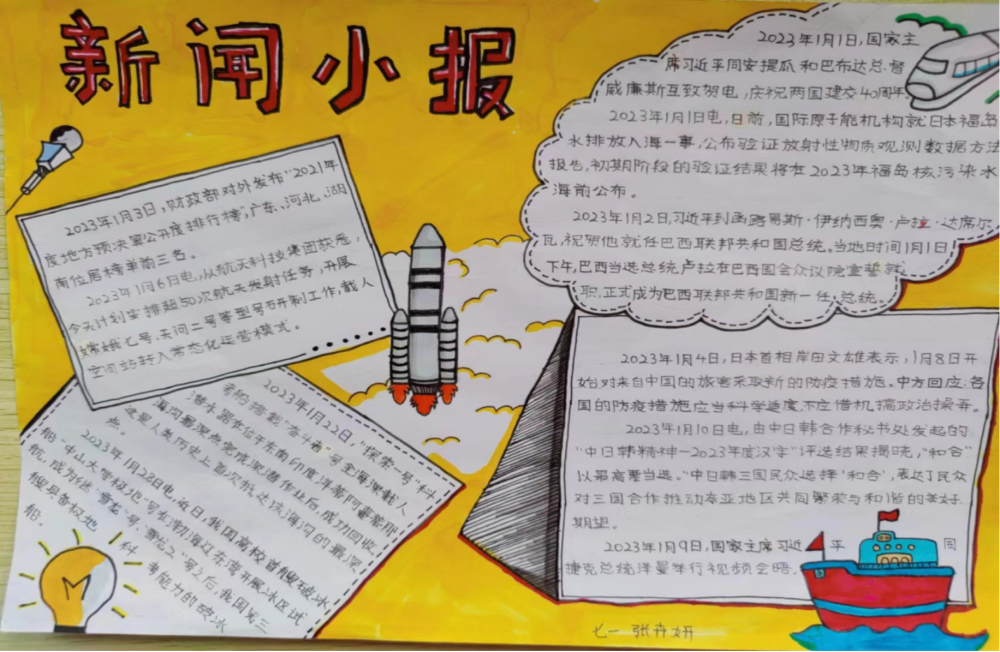 新闻小报
2023年1月3日,财政部对外发布“2021年
度地方预决算公开度排行榜”,广东、河北、湖
南位居榜单前三名。
2023年1月6日电,从航天科技集团获悉,
今天计划安排超50次航天发射任务,开展
嫦娥七号、天问二号等型号研制工作,载人
空间站转入常态化运营模式。
2023年1月22日,“探索一号”科
考船搭载“奋斗者”号全海深载人
潜水器在位于东南印度洋蒂阿曼蒂那
海沟最深点完成深潜作业后,成功回收。
这是人类历史上首次抵达该海沟的最深
点。
2023年1月28日电,近日,我国高校首艘破冰
船“中山大学极地”号在渤海辽东湾开展冰区试
航,成为继“雪龙”号、“雪龙2”号之后,我国第三
艘具备极地科考能力的破冰
船。
2023年1月1日,国家主
席习近平同安提瓜和巴布达总督
威廉斯互致贺电,庆祝两国建交40周年。
2023年1月1日电,日前,国际原子能机构就日本福岛
水排放入海一事,公布验证放射性物质观测数据方法
报告,初期阶段的验证结果将在2023年福岛核污染水
海前公布。
2023年1月2日,习近平到函路易斯·伊纳西奥·卢拉·达席尔
瓦,祝贺他就任巴西联邦共和国总统。当地时间1月1日
下午,巴西当选总统卢拉在巴西国会众议院宣誓就
职,正式成为巴西联邦共和国新一任总统。
2023年1月4日,日本首相岸田文雄表示,1月8日开
始对来自中国的旅客采取新的防疫措施。中方回应:各
国的防疫措施应当科学适度,不应借机搞政治操弄。
2023年1月10日电,由中日韩合作秘书处发起的
“中日韩精神—2023年度汉字”评选结果揭晓,“和合”
以最高票当选。“中日韩三国民众选择‘和合’,表达了民众
对三国合作推动东亚地区共同繁荣与和谐的美好
期望。
2023年1月9日,国家主席习近平同
捷克总统泽曼举行视频会晤。
七一 张卉妍